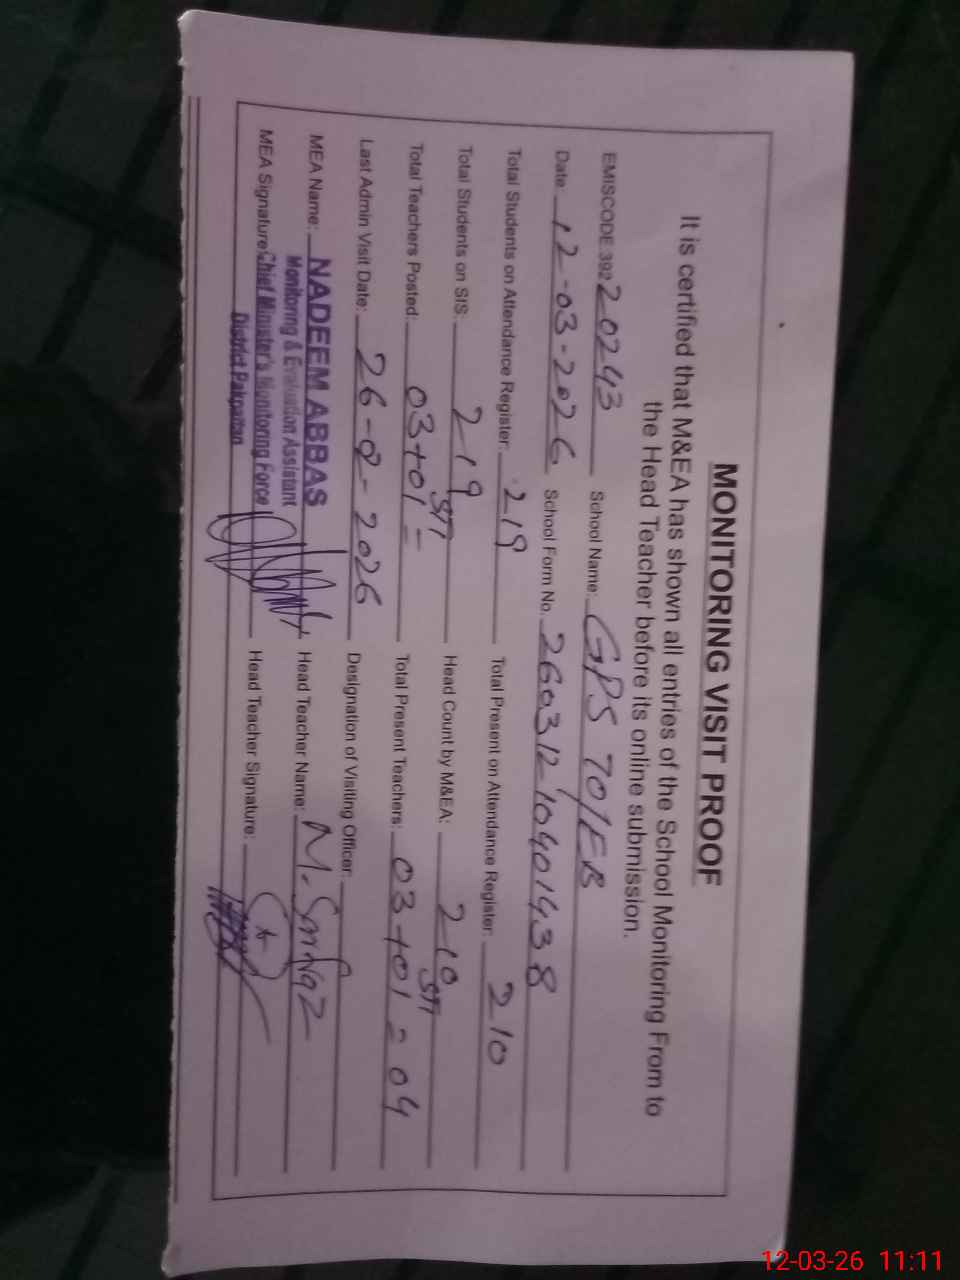 MONITORING VISIT PROOF
It is certified that M&EA has shown all entries of the School Monitoring From to
the Head Teacher before its online submission.
EMISCODE 39220243 School Name: GPS 70/EB
Date 12-03-2026 School Form No. 26031210401438
Total Students on Attendance Register: 219 Total Present on Attendance Register: 210
Total Students on SIS: 219 Head Count by M&EA: 210
Total Teachers Posted: 03+01 STI = Total Present Teachers: 03+01 STI = 04
Last Admin Visit Date: 26-02-2026 Designation of Visiting Officer:
MEA Name: NADEEM ABBAS Head Teacher Name: M.
Monitoring & Evaluation Assistant
MEA Signature: Chief Minister's Monitoring Force Head Teacher Signature:
District Pakpattan
12-03-26 11:11